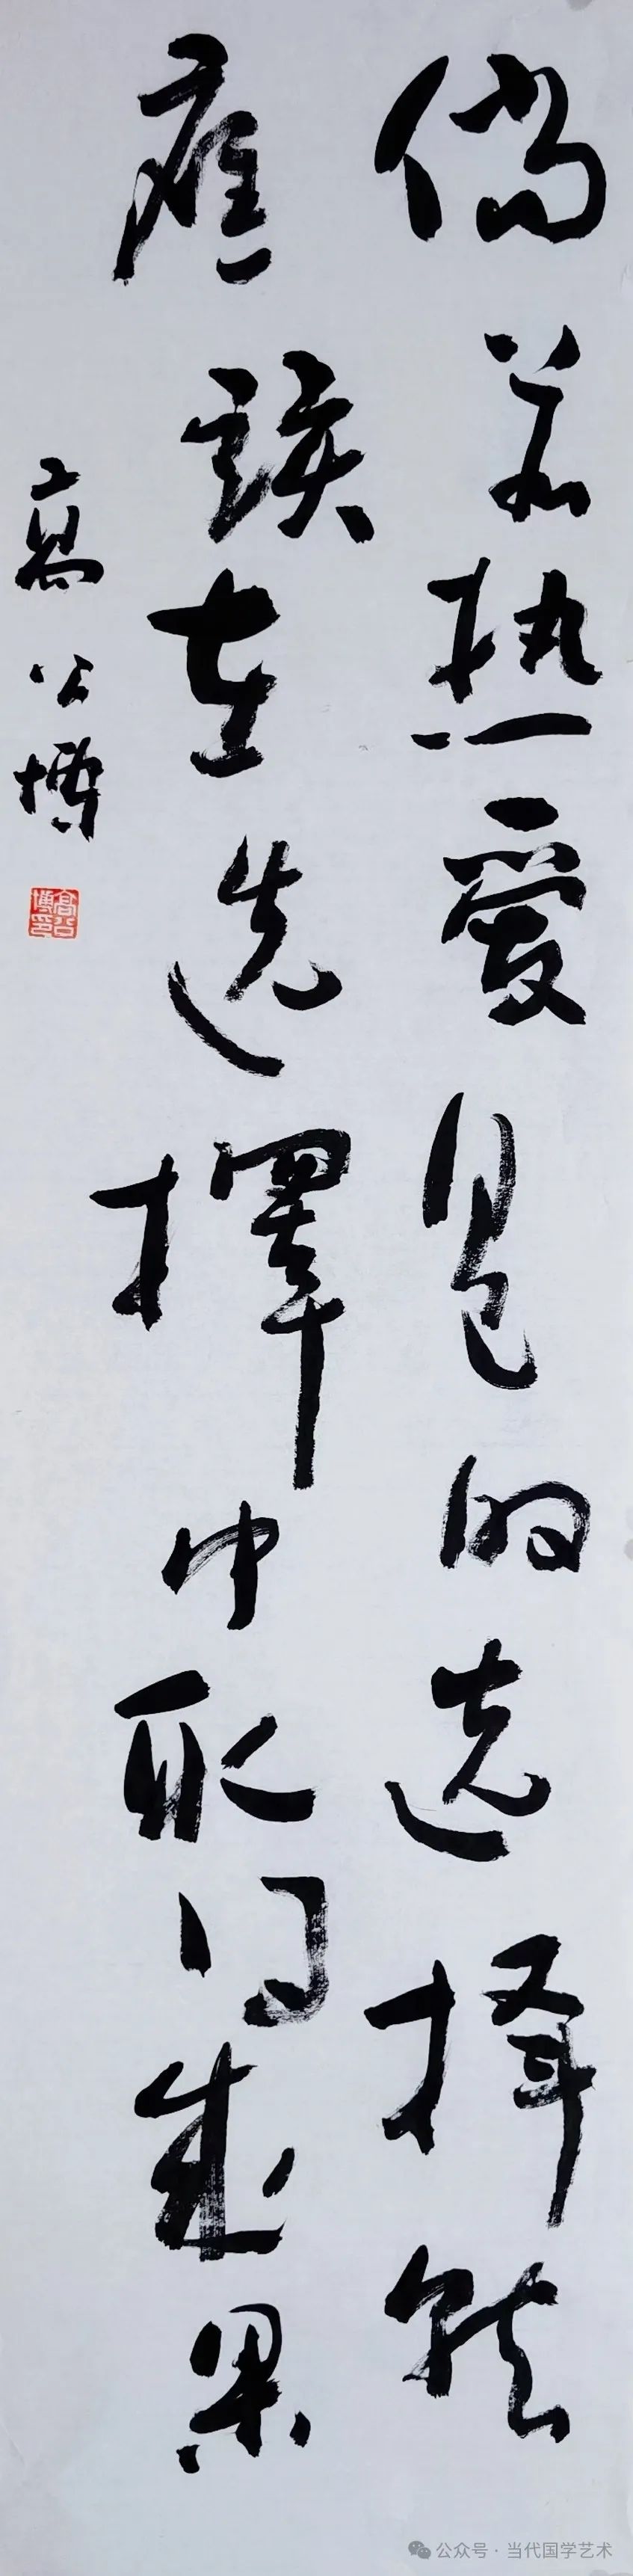 倘若热爱是的选择就
应该在选择中取得成果
高公博
高公博印
公众号·当代国学艺术